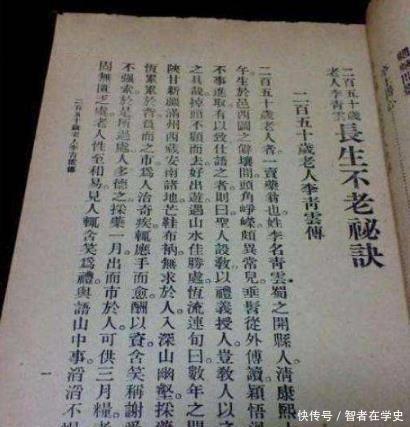 二百五十歲
老人李青雲
長生不老祕訣
二百五十歲老人李靑雲傳
二百五十歲老人者。一賣藥翁也。姓李名靑雲。蜀之開縣人。清康熙
午生於邑西圖之僻壤。開頭角崢嶸。頗異常兒。垂髫從外傅讀。穎悟
不事進取。有以致仕語之者。則曰聖人設敎。以禮義授人。豈敎人以
之具哉。掉頭不顧而去。好出遊。遇山水佳勝處。恆流連旬日。數年之間
陝甘新疆滿州西藏安南諸地。芒鞋布衲。無求於人。入深山幽壑。採
恆累累於脊。負而之市。爲人治奇疾。輒應手而愈。酬以資。含笑稱謝
不强索。於是所過處。人多德之。採藥一月。出而市於人。可供三月糧
罔無匱乏處。老人性至和易。見人輒含笑爲禮。與語山中事。滔滔不
二百五十歲老人李靑雲傳
一
快传号 / 智者在学史